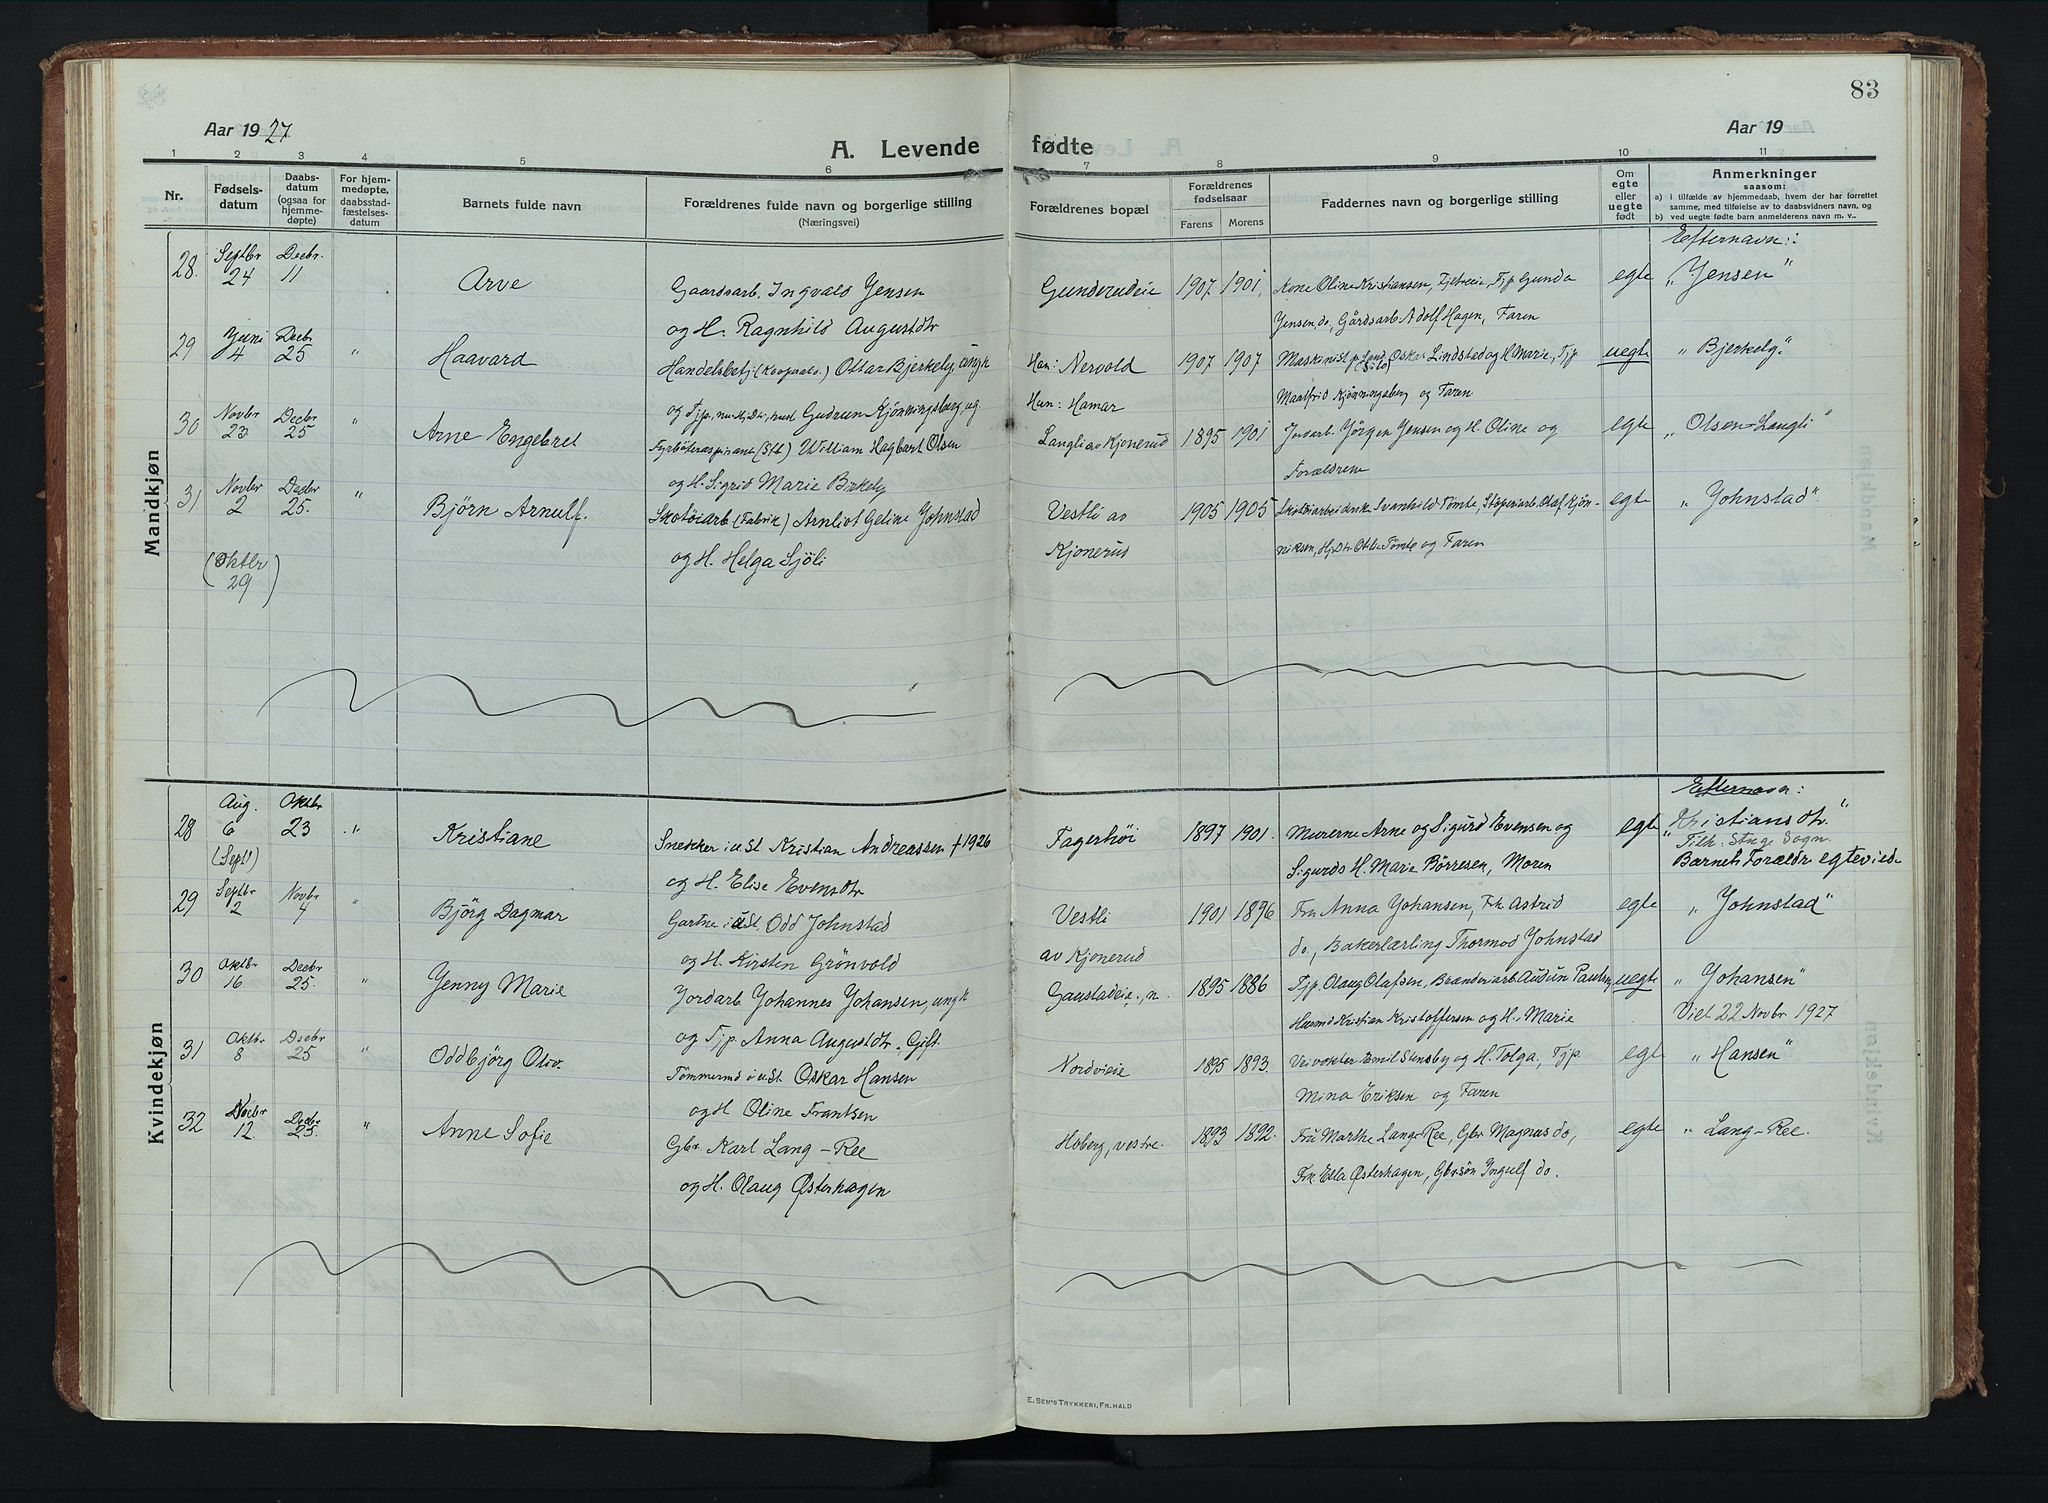 83
Aar 1927
A. Levende fødte
Aar 19
1 2 3 4 5 6 7 8 9 10 11
Nr.
Fødsels-
datum
Daabs-
datum
(ogsaa for
hjemme-
døpte)
For hjem-
medøpte,
daabsstad-
fæstelses-
datum
Barnets fulde navn
Forældrenes fulde navn og borgerlige stilling
(Næringsvei)
Forældrenes bopæl
Forældrenes
fødselsaar
Farens Morens
Faddernes navn og borgerlige stilling
Om
egte
eller
uegte
født
Anmerkninger
saasom:
a) i tilfælde av hjemmedaab, hvem der har forrettet
samme, med tilføielse av to daabsvidners navn, og
b) ved uegte fødte barn anmelderens navn m. v..
Mandkjøn
Efternavn:
28. Septbr 24 Decbr. 11 Arve Gaardsarb. Ingvald Jensen Gunderudeie 1907 1901. Kone Oline Kristiansen, Fjeltveie, Tjp Gunda egte „Jensen"
og H. Ragnhild Augustdtr Jensen, do, Gårdsarb Adolf Hagen, Faren
29 Juni 4 Decbr 25 " Haavard Handelsbetj. (Koopaals.) Ottar Bjerkely, ungk Han: Nervold 1907 1907 Maskinist Oskar Lindstad og H Marie, Tjp uegte „Bjerkely."
og Tjp, Gudrun Kjønningsberg, ug. Hun: Hamar Maalfrid Kjønningsberg og Faren
30 Novbr 23 Decbr 25 " Arne Engebret Fyrbøteraspirant (Stb) William Hagbart Olsen Langli av Kjonerud 1895 1901 Jordarb. Jörgen Jensen og H. Oline og egte „Olsen-Langli"
og H. Sigrid Marie Birkely Forældrene
31. Novbr 2 Decbr 25. " Björn Arnulf. Skotöiarb (Fabrik) Arnliot Geline Johnstad Vestli av 1905 1905 Svanhild Tömte, Støperiarb. Olaf Kjön- egte „Johnstad".
(Oktbr 29) og H. Helga Sjöli Kjonerud niksen, Otli Tömte og Faren
Kvindekjøn
Efternavn:
28 Aug. 6 Oktbr 23 " Kristiane Snekker i u. St. Kristian Andreassen † 1926 Fagerhöi 1897 1901. Murerne Arne og Sigurd Evensen og egte „Kristiansdtr."
(Septbr) og H. Elise Evensdtr Sigurds H. Marie Börresen, Moren Tilh. Stange Sogn.
Barnets Forældr egteviede
29 Septbr 2 Novbr 4 " Björg Dagmar Gartner i u St. Odd Johnstad Vestli 1901 1896 Fru Anna Johansen, Frk Astrid egte „Johnstad"
og H. Kirsten Grönvold av Kjonerud do., Bakerlærling Thormod Johnstad
30 Oktbr 16 Decbr 25. " Jenny Marie Jordarb Johannes Johansen, ungk Gaustadeie., n. 1895 1886 Tjp. Olaug Olafsen, Brænderiarb. Audun Paulsen, uegte „Johansen"
og Tjp Anna Augustdtr. Gift. Husmd Kristian Kristoffersen og H. Marie Viet 22 Novbr 1927
31 Oktbr 8 Decbr 25 " Oddbjörg Oliv. Tömmermd i u. St. Oskar Hansen Nordvieie 1895 1893. Veivokter Emil Stensby og H. Tolga, Tjp. egte „Hansen"
og H Oline Frantsen Mina Eriksen og Faren
32 Novbr 12 Decbr 25. " Anne Sofie Gbr. Karl Lang-Ree Hoberg, vestre. 1893 1892. Fru Marthe Lang-Ree, Gbr Magnus do, egte „Lang-Ree.
og H. Olaug Østerhagen Frk Ella Østerhagen, Gbrsön Ingulf do.
E. SEM'S TRYKKERI, FR. HALD